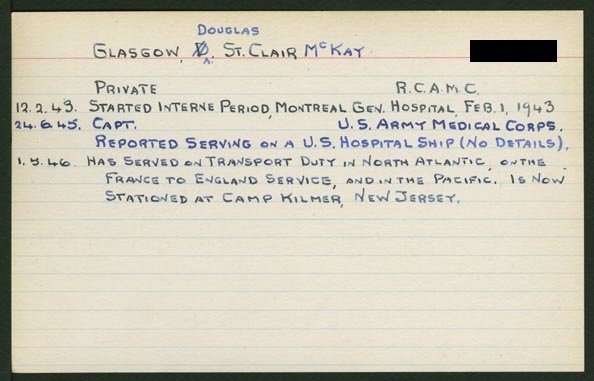 DOUGLAS
GLASGOW, D. ST. CLAIR McKAY
PRIVATE R.C.A.M.C.
12.2.43. STARTED INTERNE PERIOD, MONTREAL GEN. HOSPITAL, FEB. 1, 1943
24.6.45. CAPT. U.S. ARMY MEDICAL CORPS.
REPORTED SERVING ON A U.S. HOSPITAL SHIP (NO DETAILS).
HAS SERVED ON TRANSPORT DUTY IN NORTH ATLANTIC, ON THE
FRANCE TO ENGLAND SERVICE, AND IN THE PACIFIC. IS NOW
STATIONED AT CAMP KILMER, NEW JERSEY.